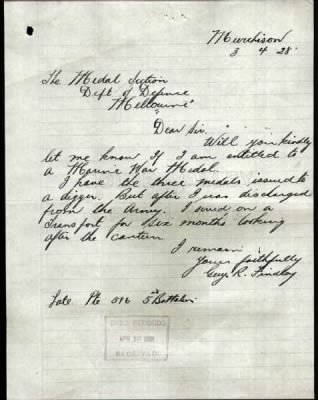 Murchison
3 4 28
The Medal Section
Dept of Defence
Melbourne
"Dear Sir."
Will you kindly
let me know If I am entitled to
a Marine War Medal.
I have the three medals issued to
a digger. But after I was discharged
from the Army. I served on a
Transport for six months looking
after the canteen.
I remain
Yours faithfully
Guy R. Findlay
Late Pte 516 5th Battalion
RECEIVED